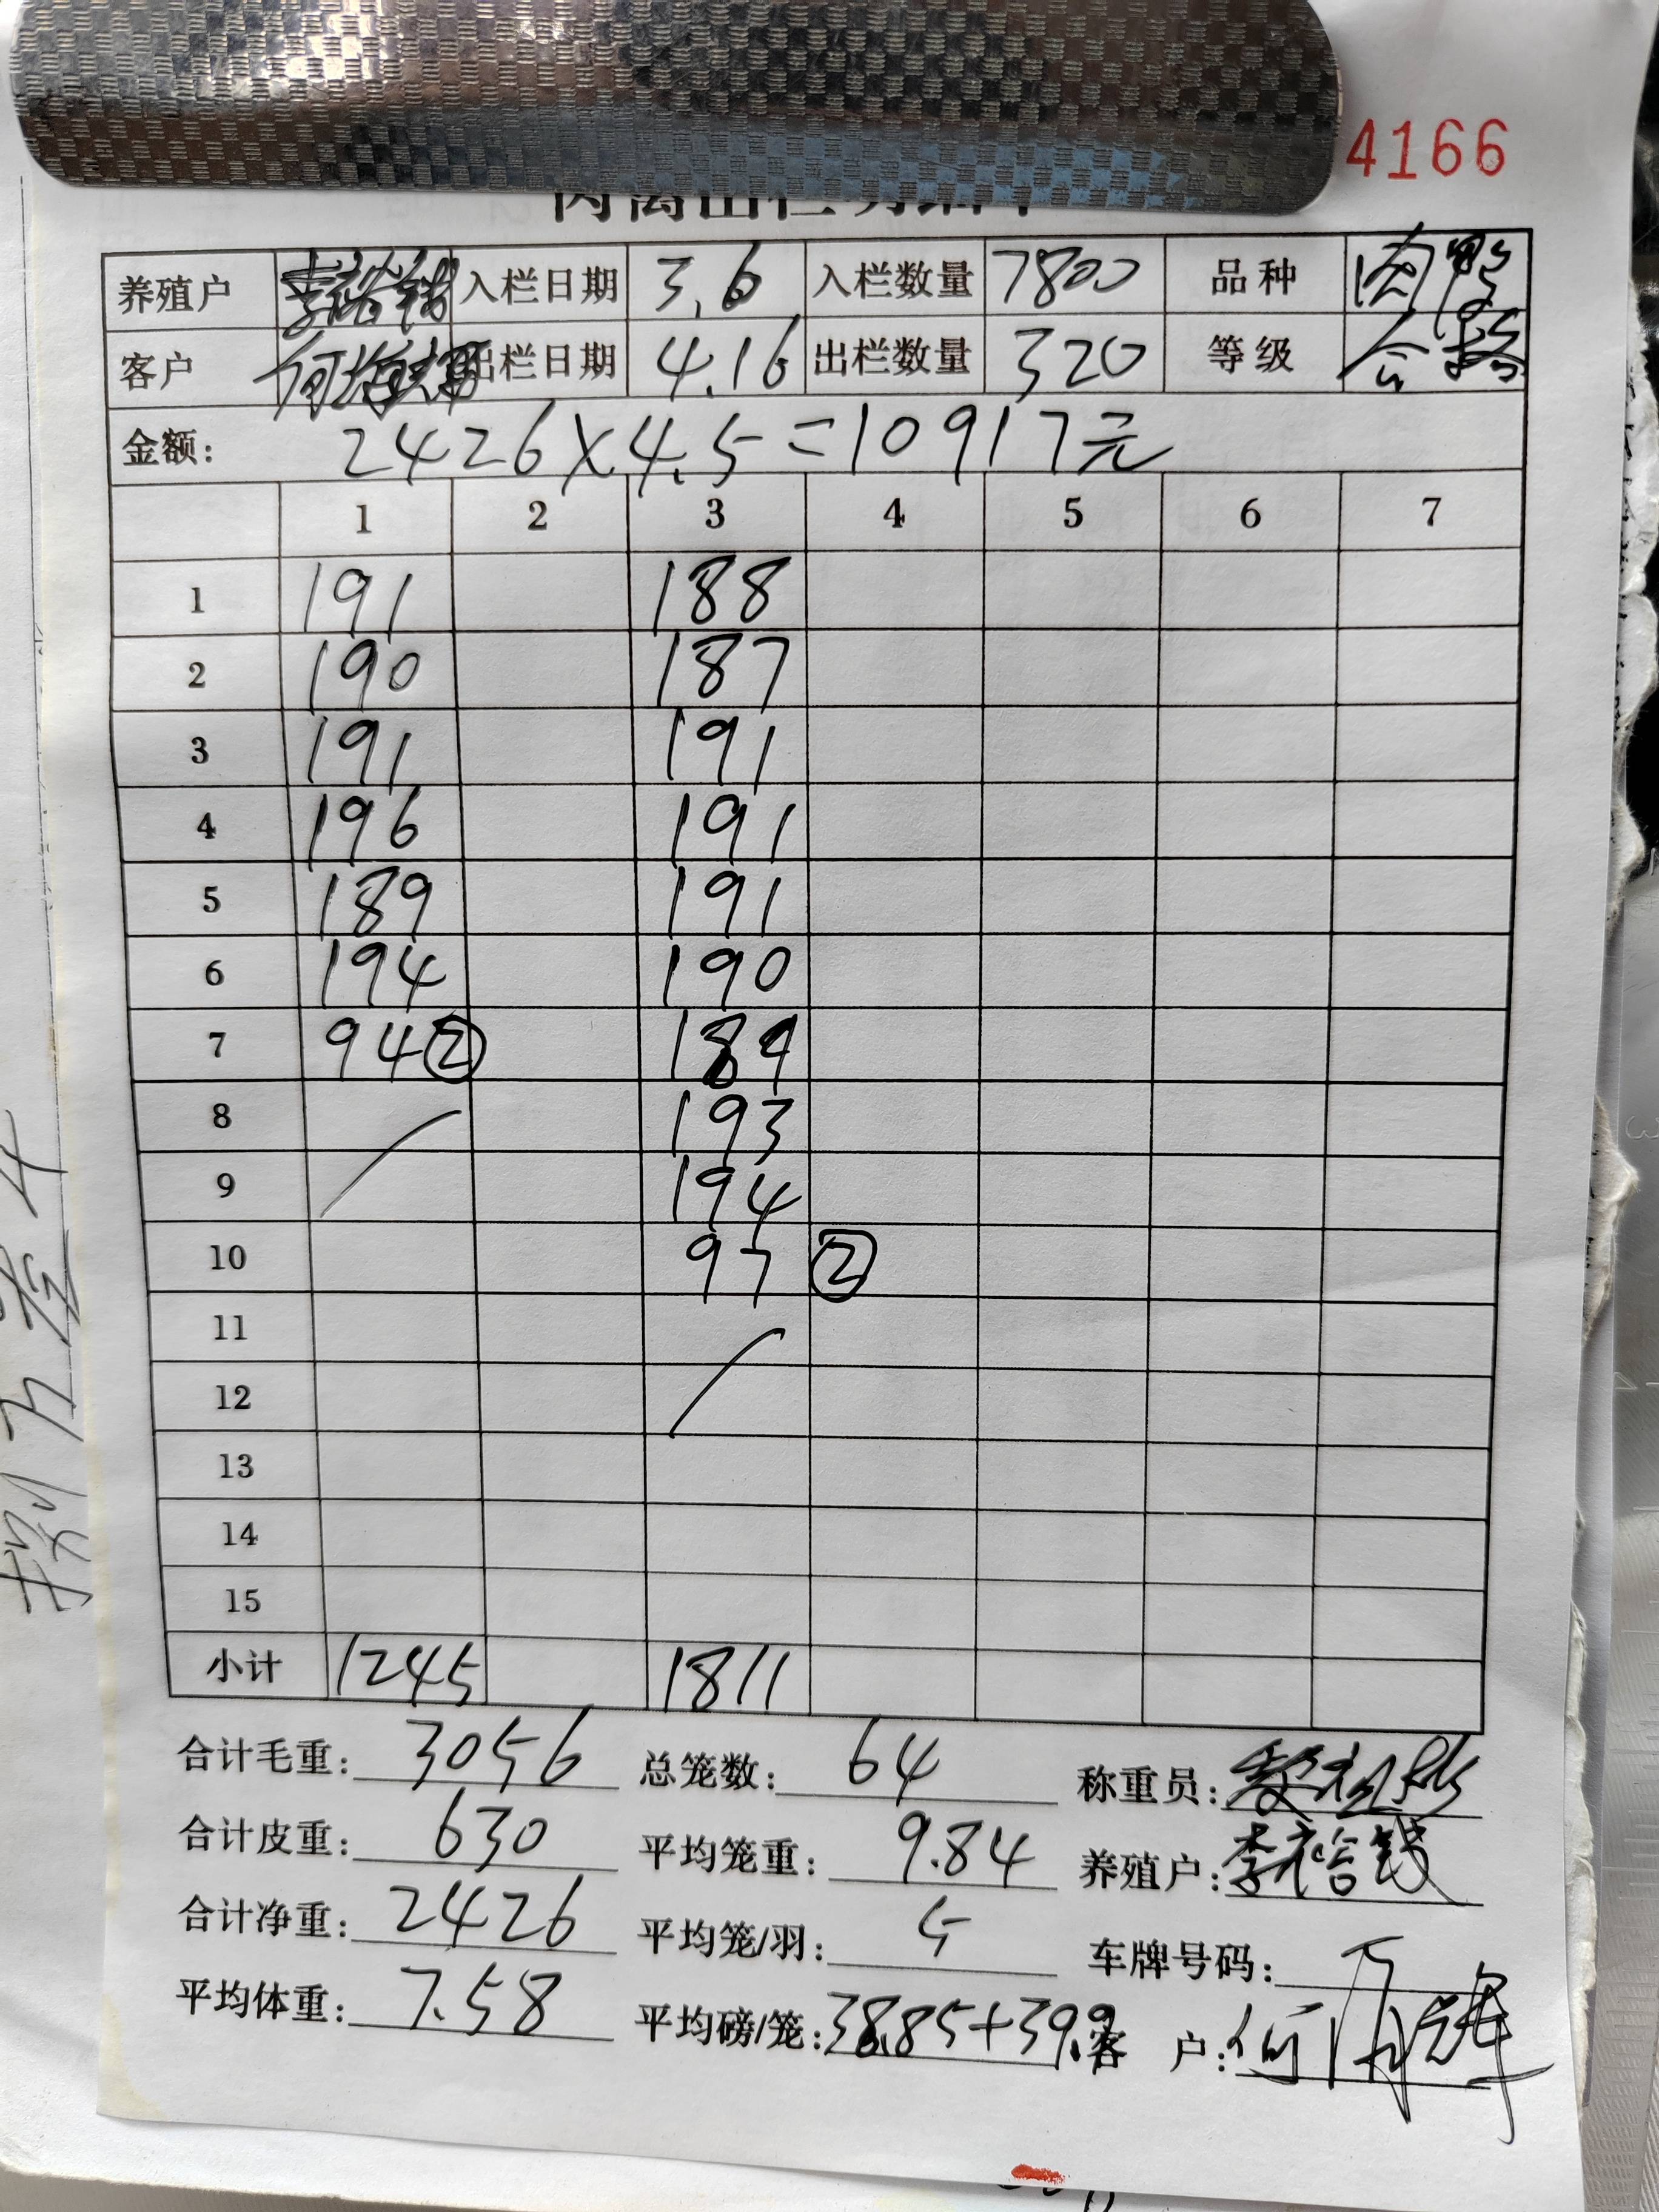 4166
养殖户 李裕钱 入栏日期 3.6 入栏数量 7800 品种 肉鸭
客户 何海辉 出栏日期 4.16 出栏数量 320 等级 合格
金额: 2426×4.5=10917元
1 2 3 4 5 6 7
1 191 188
2 190 187
3 191 191
4 196 191
5 189 191
6 194 190
7 94② 189
8 193
9 194
10 97 ②
11
12
13
14
15
小计 1245 1811
合计毛重: 3056 总笼数: 64 称重员:
合计皮重: 630 平均笼重: 9.84 养殖户: 李裕钱
合计净重: 2426 平均笼/羽: 5 车牌号码:
平均体重: 7.58 平均磅/笼: 38.85+39.9 客 户: 何海辉